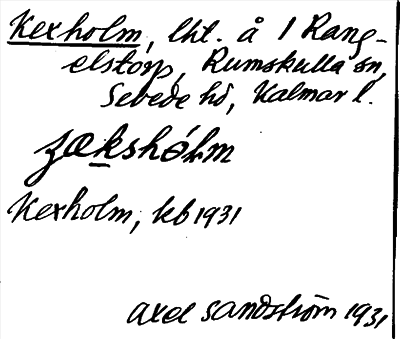 Kexholm, lht. å 1 Rang-
elstorp, Rumskulla sn,
Sevede hd, Kalmar l.
Kexholm, kb 1931
Axel Sandström 1931